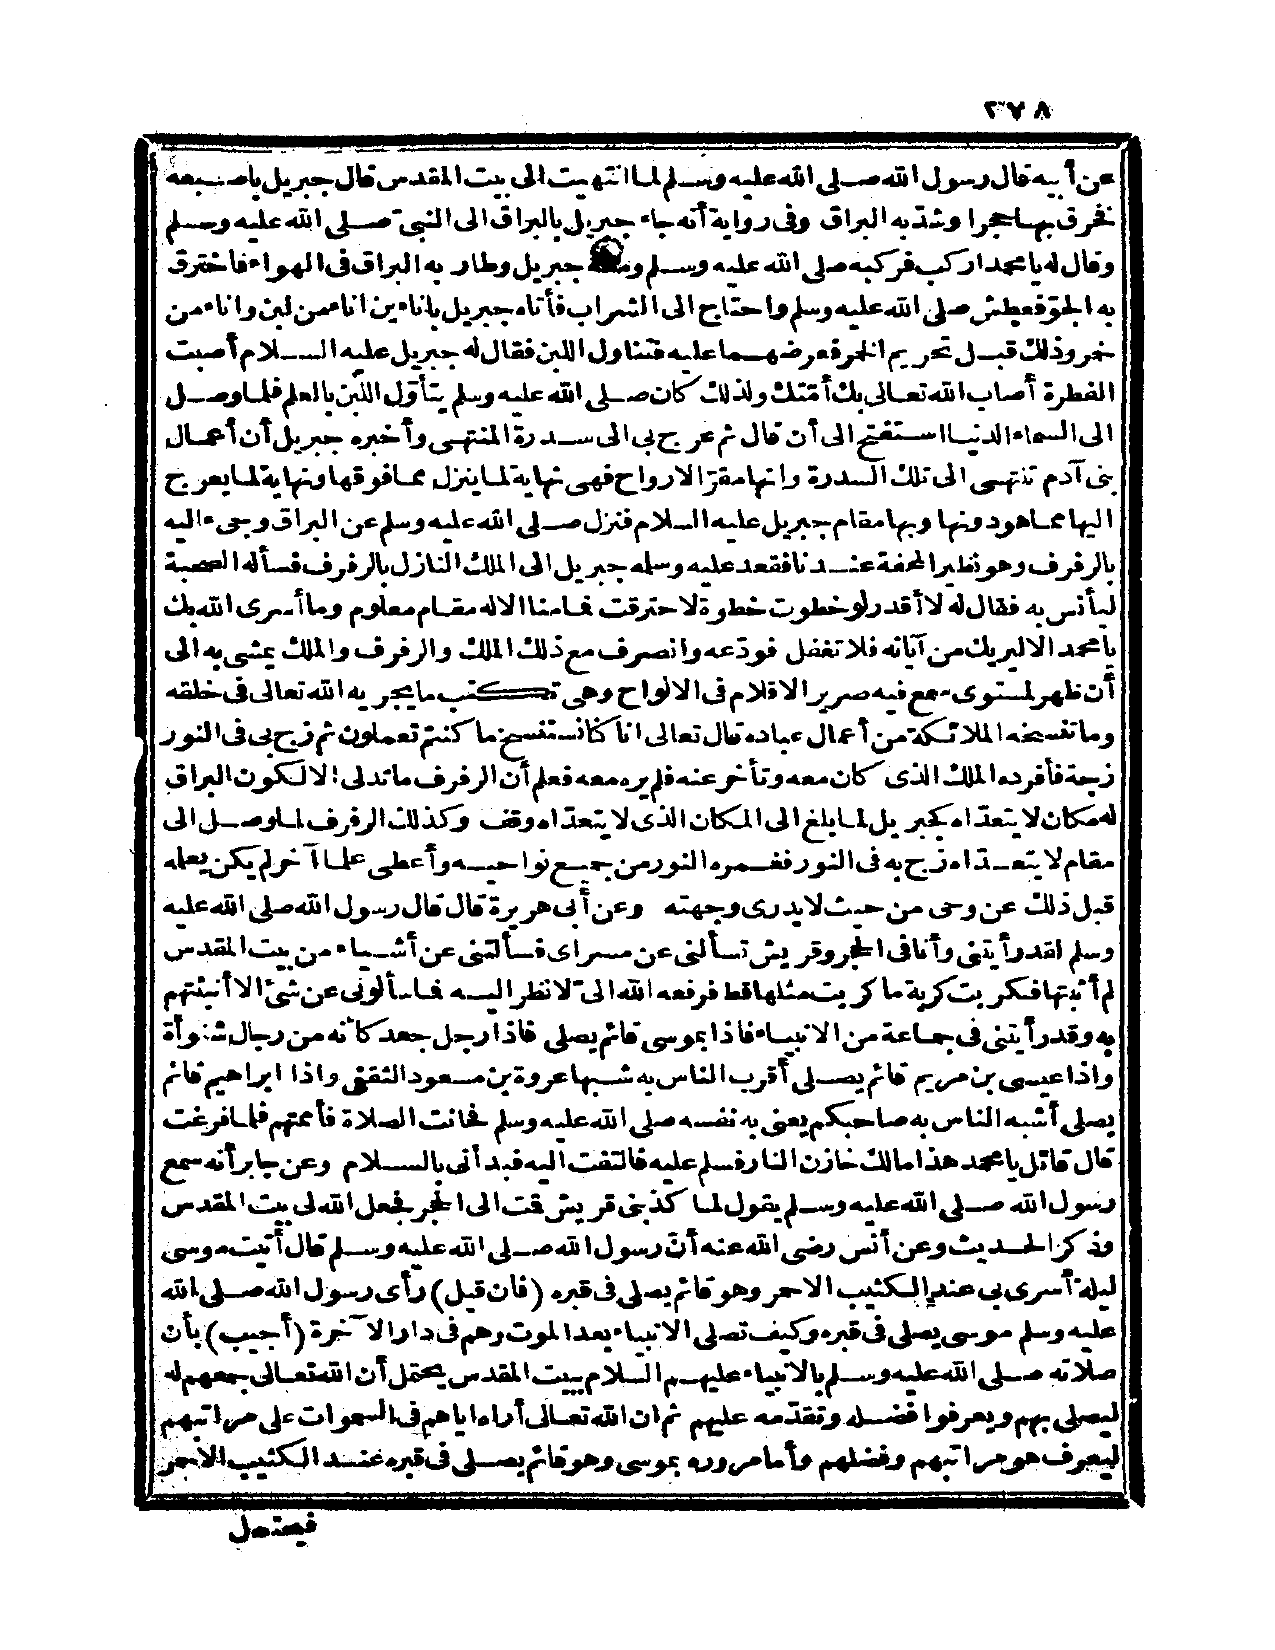 ٢٧٨
عن أبيه قال رسول الله صلى الله عليه وسلم لما انتهيت الى بيت المقدس قال جبريل باصبعه
فخرق بها حجرا وشد به البراق وفى رواية أنه جاء جبريل بالبراق الى النبى صلى الله عليه وسلم
وقال له يا محمد اركب فركبه صلى الله عليه وسلم جبريل وطار به البراق فى الهواء فاخترق
به الجو فعطش صلى الله عليه وسلم واحتاج الى الشراب فأتاه جبريل باناءين اناء من لبن واناء من
خمر وذلك قبل تحريم الخمر فعرضهما عليه فتناول اللبن فقال له جبريل عليه السلام أصبت
الفطرة أصاب الله تعالى بك أمتك ولذلك كان صلى الله عليه وسلم يتأول اللبن بالعلم فلما وصل
الى السماء الدنيا استفتح الى أن قال ثم عرج بى الى سدرة المنتهى وأخبره جبريل أن أعمال
بنى آدم تنتهى الى تلك السدرة وانها مقر الارواح فهى نهاية لما ينزل مما فوقها ونهاية لما يعرج
اليها مما هو دونها وبها مقام جبريل عليه السلام فنزل صلى الله عليه وسلم عن البراق وجىء اليه
بالرفرف وهو نظير المحفة عندنا فقعد عليه وسلمه جبريل الى الملك النازل بالرفرف فسأله الصحبة
ليأنس به فقال له لا أقدر لو خطوت خطوة لاحترقت فما منا الا له مقام معلوم وما أسرى الله بك
يا محمد الا ليريك من آياته فلا تغفل فودعه وانصرف مع ذلك الملك والرفرف والملك يمشى به الى
أن ظهر لمستوى سمع فيه صرير الاقلام فى الالواح وهى تكتب ما يجريه الله تعالى فى خلقه
وما تنسخه الملائكة من أعمال عباده قال تعالى انا كنا نستنسخ ما كنتم تعملون ثم زج بى فى النور
زجة فأفرده الملك الذى كان معه وتأخر عنه فلم يره معه فعلم أن الرفرف ما تدلى الا لكون البراق
له مكان لا يتعداه كجبريل لما بلغ الى المكان الذى لا يتعداه وقف وكذلك الرفرف لما وصل الى
مقام لا يتعداه زج به فى النور فغمره النور من جميع نواحيه وأعطى علما آخر لم يكن يعلمه
قبل ذلك عن وحى من حيث لا يدرى وجهته وعن أبى هريرة قال قال رسول الله صلى الله عليه
وسلم لقد رأيتنى وأنا فى الحجر وقريش تسألنى عن مسراى فسألتنى عن أشياء من بيت المقدس
لم أثبتها فكربت كربة ما كربت مثلها قط فرفعه الله الىّ لانظر اليه فما سألونى عن شئ الا أنبئتهم
به وقد رأيتنى فى جماعة من الانبياء فاذا بموسى قائم يصلى فاذا رجل جعد كأنه من رجال شنوأة
واذا عيسى بن مريم قائم يصلى أقرب الناس به شبها عروة بن مسعود الثقفى واذا ابراهيم قائم
يصلى أشبه الناس به صاحبكم يعنى به نفسه صلى الله عليه وسلم فحانت الصلاة فأممتهم فلما فرغت
قال قائل يا محمد هذا مالك خازن النار فسلم عليه فالتفت اليه فبدأنى بالسلام وعن جابر أنه سمع
رسول الله صلى الله عليه وسلم يقول لما كذبنى قريش قت الى الحجر فجعل الله لى بيت المقدس
وذكر الحديث وعن أنس رضى الله عنه أنّ رسول الله صلى الله عليه وسلم قال أتيت موسى
ليلة أسرى بى عند الكثيب الاحمر وهو قائم يصلى فى قبره (فان قيل) رأى رسول الله صلى الله
عليه وسلم موسى يصلى فى قبره وكيف تصلى الانبياء بعد الموت وهم فى دار الآخرة (أجيب) بأن
صلاته صلى الله عليه وسلم بالانبياء عليهم السلام ببيت المقدس يحتمل أن الله تعالى جمعهم له
ليصلى بهم ويعرفوا فضله وتقدّمه عليهم ثم ان الله تعالى أراه اياهم فى السموات على مراتبهم
ليعرف هو مراتبهم وفضلهم وأما مروره بموسى وهو قائم يصلى فى قبره عند الكثيب الاحمر
فيحتمل